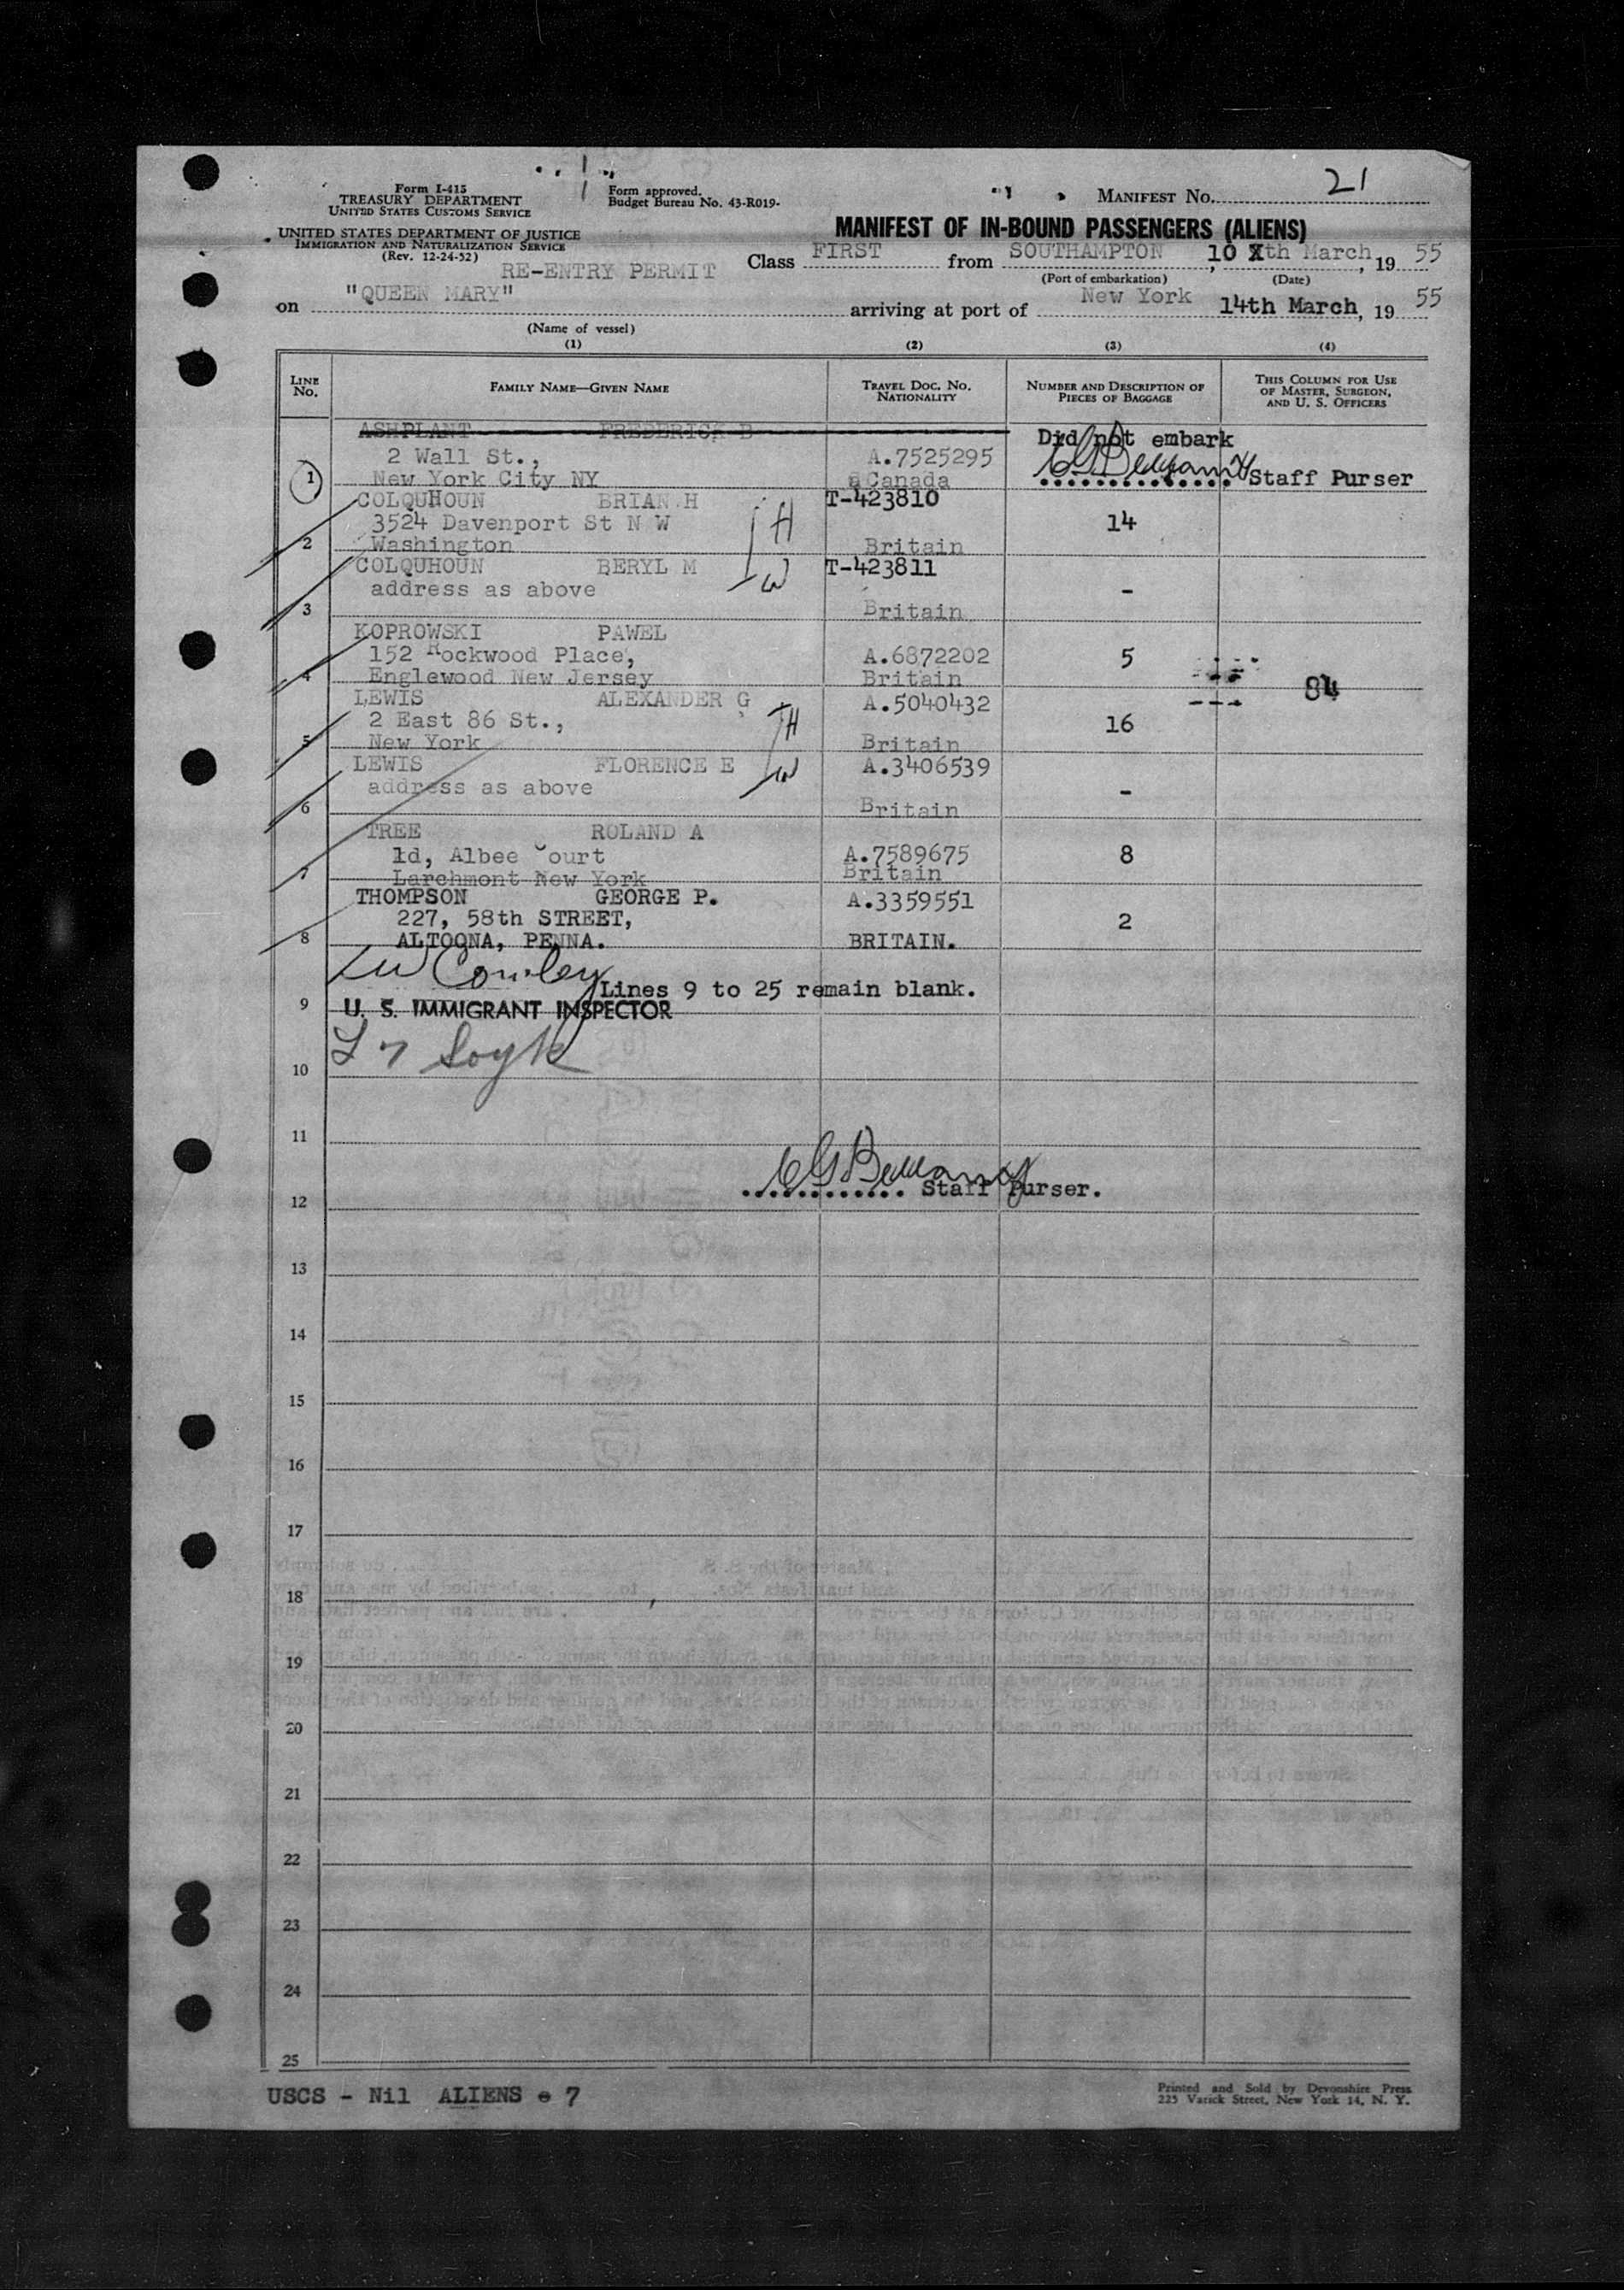 Form I-415
TREASURY DEPARTMENT
UNITED STATES CUSTOMS SERVICE
UNITED STATES DEPARTMENT OF JUSTICE
IMMIGRATION AND NATURALIZATION SERVICE
(Rev. 12-24-52)
Form approved.
Budget Bureau No. 43-R019-
MANIFEST No. 21
MANIFEST OF IN-BOUND PASSENGERS (ALIENS)
RE-ENTRY PERMIT
Class FIRST from SOUTHAMPTON, 10 Xth March, 19 55
(Port of embarkation) (Date)
on "QUEEN MARY" arriving at port of New York 14th March, 19 55
(Name of vessel)
(1) (2) (3) (4)
LINE No. FAMILY NAME—GIVEN NAME TRAVEL DOC. NO. NATIONALITY NUMBER AND DESCRIPTION OF PIECES OF BAGGAGE THIS COLUMN FOR USE OF MASTER, SURGEON, AND U. S. OFFICERS
ASHPLANT FREDERICK B Did not embark
2 Wall St., A.7525295
1 New York City NY Canada Staff Purser
COLQUHOUN BRIAN H T-423810
3524 Davenport St N W H 14
2 Washington Britain
COLQUHOUN BERYL M W T-423811
address as above -
3 Britain
KOPROWSKI PAWEL
152 Rockwood Place, A.6872202 5
4 Englewood New Jersey Britain 84
LEWIS ALEXANDER G A.5040432
2 East 86 St., H 16
5 New York Britain
LEWIS FLORENCE E W A.3406539
address as above -
6 Britain
TREE ROLAND A
1d, Albee Court A.7589675 8
7 Larchmont New York Britain
THOMPSON GEORGE P. A.3359551
227, 58th STREET, 2
8 ALTOONA, PENNA. BRITAIN.
Cowley
Lines 9 to 25 remain blank.
9 U. S. IMMIGRANT INSPECTOR
10
11
............ Staff Purser.
12
13
14
15
16
17
18
19
20
21
22
23
24
25
USCS - Nil ALIENS - 7
Printed and Sold by Devonshire Press
225 Varick Street, New York 14, N. Y.